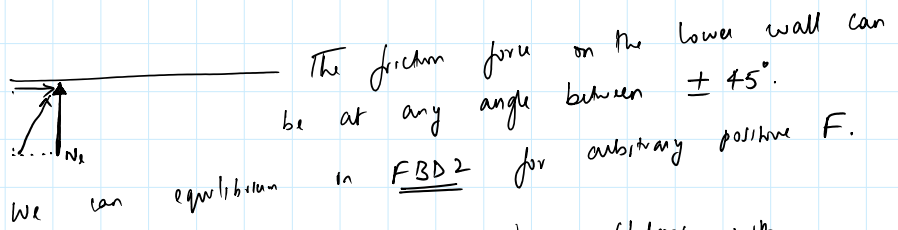 The friction force on the lower wall can
be at any angle between ± 45°.
N₂
We can equilibrium in FBD2 for arbitrary positive F.